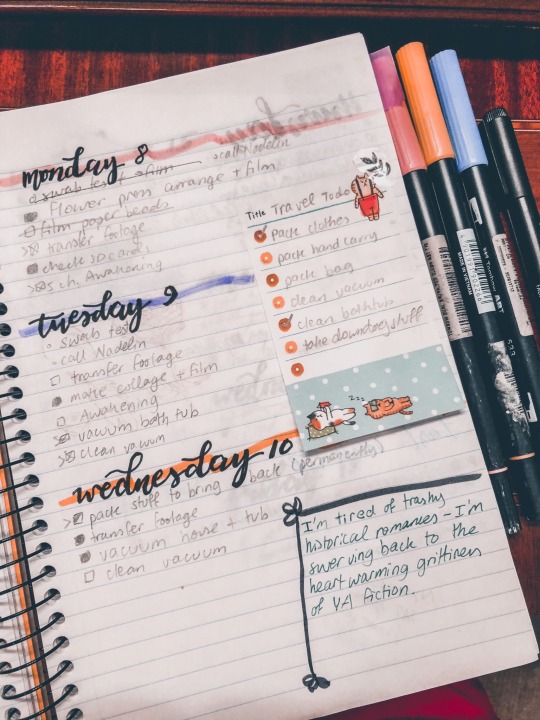 monday 8
swab test film call Nadelin
Flower press arrange + film
film paper beads
transfer footage
check SD cards
5 ch. Awakening
tuesday 9
swab test
call Nadelin
transfer footage
make collage + film
Awakening
vacuum bath tub
clean vacuum
wednesday 10
pack stuff to bring back (permanently)
transfer footage
vacuum house + tub
clean vacuum
Title Travel Todo
Pack clothes
pack hand carry
pack bag
clean vacuum
clean bathtub
take downstairs stuff
zzz
I'm tired of trashy
historical romances - I'm
swerving back to the
heartwarming grittiness
of YA fiction.